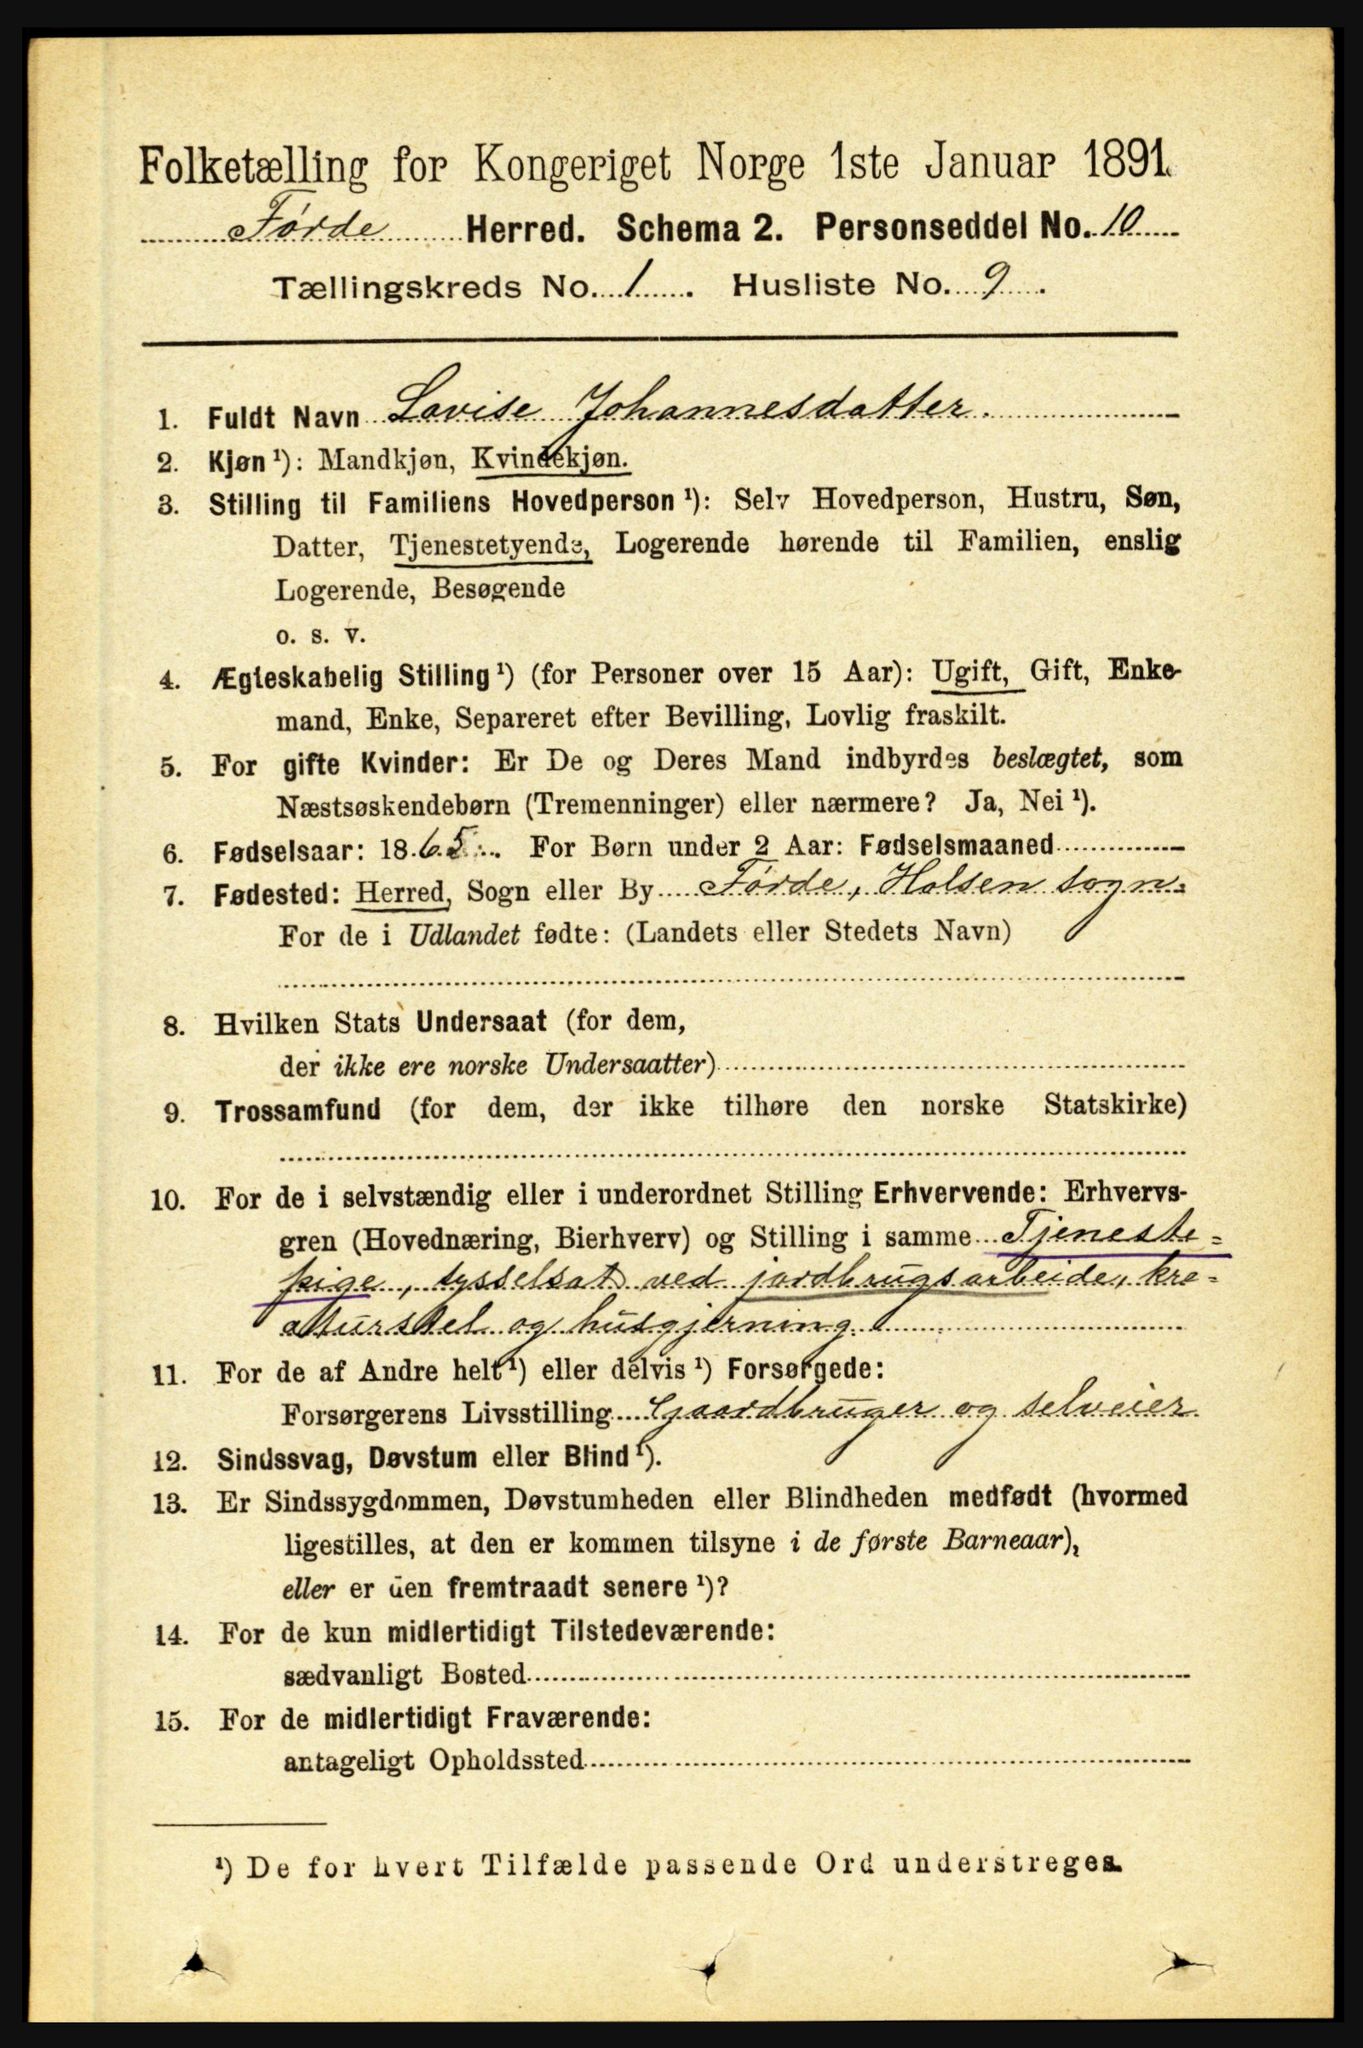 Folketælling for Kongeriget Norge 1ste Januar 1891.
Førde Herred. Schema 2. Personseddel No. 10
Tællingskreds No. 1. Husliste No. 9.
1. Fuldt Navn Lovise Johannesdatter.
2. Kjøn ¹): Mandkjøn, Kvindekjøn.
3. Stilling til Familiens Hovedperson ¹): Selv Hovedperson, Hustru, Søn,
Datter, Tjenestetyende, Logerende hørende til Familien, enslig
Logerende, Besøgende
o. s. v.
4. Ægteskabelig Stilling ¹) (for Personer over 15 Aar): Ugift, Gift, Enke-
mand, Enke, Separeret efter Bevilling, Lovlig fraskilt.
5. For gifte Kvinder: Er De og Deres Mand indbyrdes beslægtet, som
Næstsøskendebørn (Tremenninger) eller nærmere? Ja, Nei ¹).
6. Fødselsaar: 1865. For Børn under 2 Aar: Fødselsmaaned
7. Fødested: Herred, Sogn eller By Førde, Holsen sogn.
For de i Udlandet fødte: (Landets eller Stedets Navn)
8. Hvilken Stats Undersaat (for dem,
der ikke ere norske Undersaatter)
9. Trossamfund (for dem, der ikke tilhøre den norske Statskirke)
10. For de i selvstændig eller i underordnet Stilling Erhvervende: Erhvervs-
gren (Hovednæring, Bierhverv) og Stilling i samme Tjeneste-
pige, sysselsat ved jordbrugsarbeide, kre-
aturstel og husgjerning.
11. For de af Andre helt ¹) eller delvis ¹) Forsørgede:
Forsørgerens Livsstilling Gaardbruger og selveier
12. Sindssvag, Døvstum eller Blind ¹).
13. Er Sindssygdommen, Døvstumheden eller Blindheden medfødt (hvormed
ligestilles, at den er kommen tilsyne i de første Barneaar),
eller er den fremtraadt senere ¹)?
14. For de kun midlertidigt Tilstedeværende:
sædvanligt Bosted
15. For de midlertidigt Fraværende:
antageligt Opholdssted
¹) De for hvert Tilfælde passende Ord understreges.